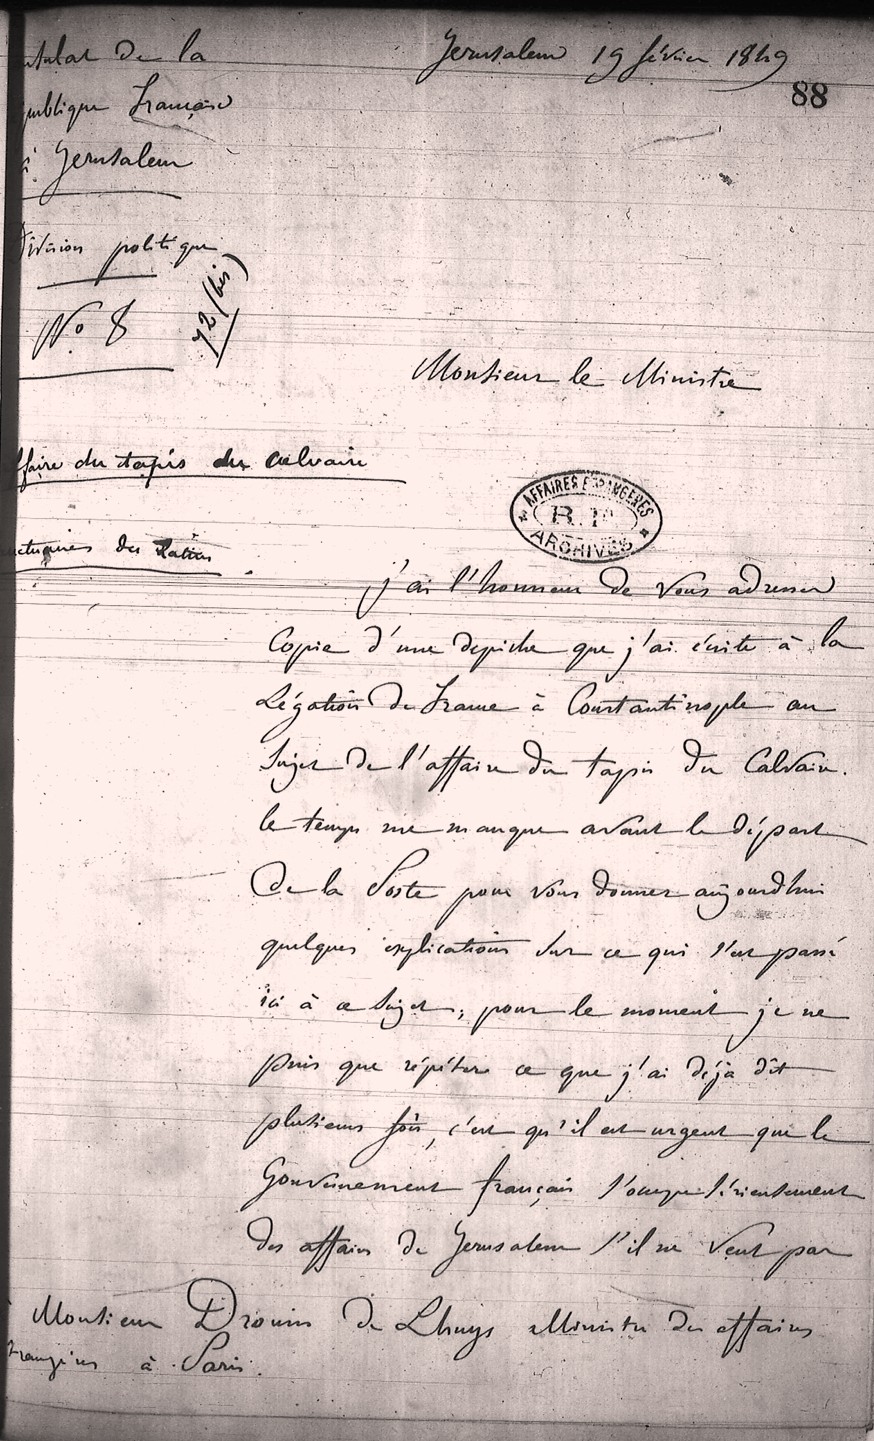 nsulat de la
Jerusalem 19 février 1849
88
publique française
à Jerusalem
Division politique
No 8
72 (bis)
Monsieur le Ministre
ffaire du tapis du calvaire
AFFAIRES ETRANGERES
ARCHIVES
nctuaires des Latins
j'ai l'honneur de vous adresser
Copie d'une depêche que j'ai écrite à la
Légation de France à Constantinople au
Sujet de l'affaire du tapis du Calvaire.
le temps me manque avant le départ
De la Poste pour vous donner aujourdhui
quelques explications sur ce qui s'est passé
ici à ce sujet, pour le moment je ne
puis que répéter ce que j'ai déjà dit
plusieurs fois, c'est qu'il est urgent que le
Gouvernement français s'occupe sérieusement
des affaires de Jerusalem s'il ne veut pas
à Monsieur Drouin de Lhuys Ministre des affaires
trangères à Paris.